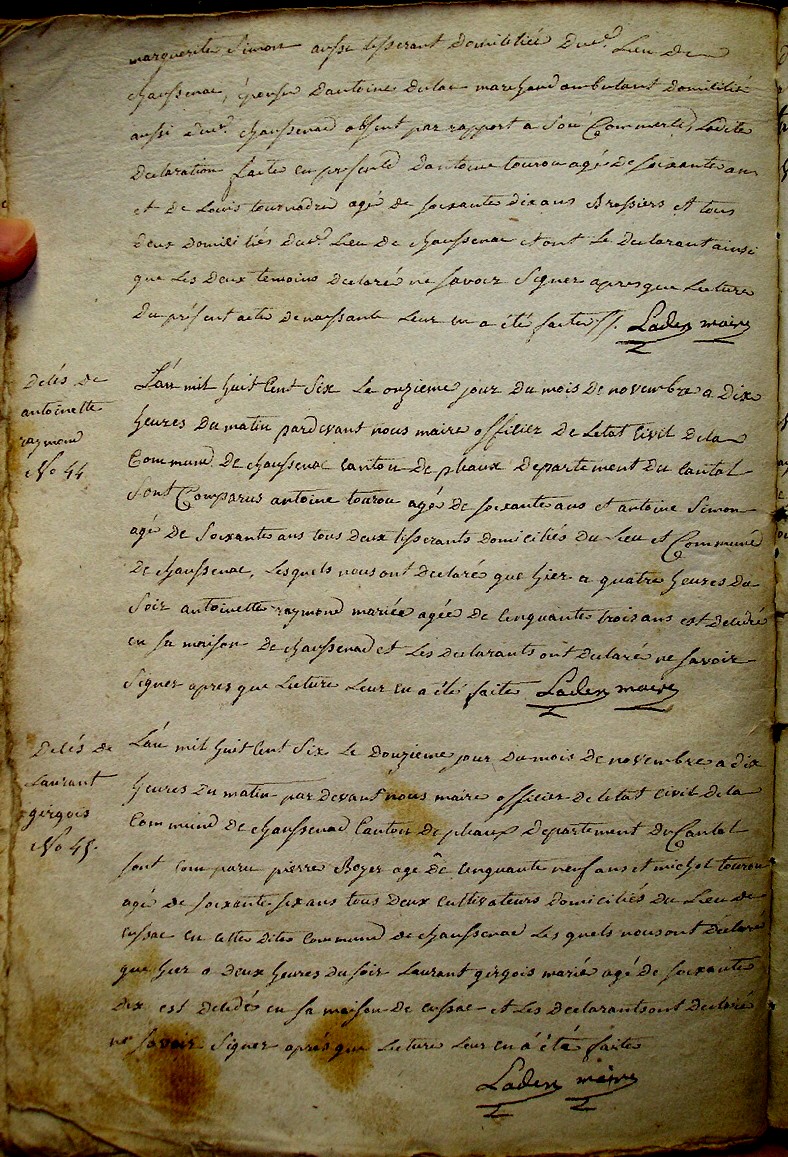 marguerite Simon aussi tisserant domiciliée dud. Lieu de
chaussenac, épouse dantoine marchand ambulant domicilié
aussi dud. chaussenac absent par rapport a Son Commerce, Ladite
declaration faite en presence dantoine tourou agé de soixante ans
et de Louis tournadre agé de soixante dix ans Brassiers et tous
deux domiciliés dud. Lieu de chaussenac et ont Le declarant ainsi
que Les deux temoins declaré ne savoir Signer apres que Lecture
du présent acte de naissance Leur en a été faite //. Laden maire
Decés de
antoinette
raymond
No 44
L'an mil huit Cent Six Le onzieme jour du mois de novembre a dix
heures du matin pardevant nous maire officier de Letat Civil de la
Commune De chaussenac canton de pleaux Departement du Cantal
Sont Comparus antoine tourou agé de soixante ans et antoine Simon
agé de Soixante ans tous deux tisserants domiciliés du Lieu et Commune
de chaussenac, Lesquels nous ont declaré que hier a quatre heures du
Soir antoinette raymond mariée agée de Cinquante trois ans est decedé
en sa maison de chaussenac et Les declarants ont declaré ne savoir
Signer apres que Lecture Leur en a été faite Laden maire
Decés de
Laurant
girgois
No 45.
L'an mil huit Cent Six Le douzieme jour du mois de novembre a dix
heures du matin par devant nous maire officier de letat civil de la
Commune de chaussenac Canton de pleaux Departement du Cantal
sont comparu pierre Boyer age de Cinquante neuf ans et michel tourou
agé de soixante six ans tous deux cultivateurs domiciliés du Lieu de
cussac en cette dite Commune de chaussenac Les quels nous ont déclaré
que hier a deux heures du soir Laurant girgois marié agé de soixante
dix est decedé en sa maison de cussac et Les declarants ont declaré
ne savoir Signer aprés que Lecture Leur en a été faite
Laden maire